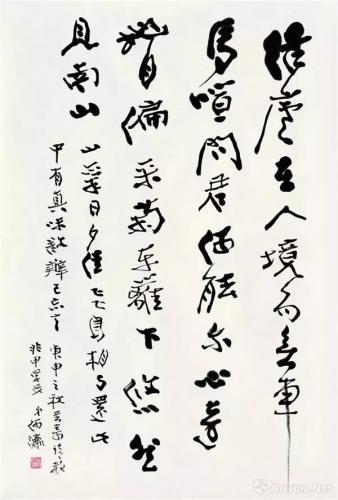 結廬在人境而無車
馬喧問君何能尔心遠
地自偏采菊東籬下悠然
見南山
山氣日夕佳飞鳥相与還此
中有真味欲辨已忘言 庚申之秋
Artron.Net